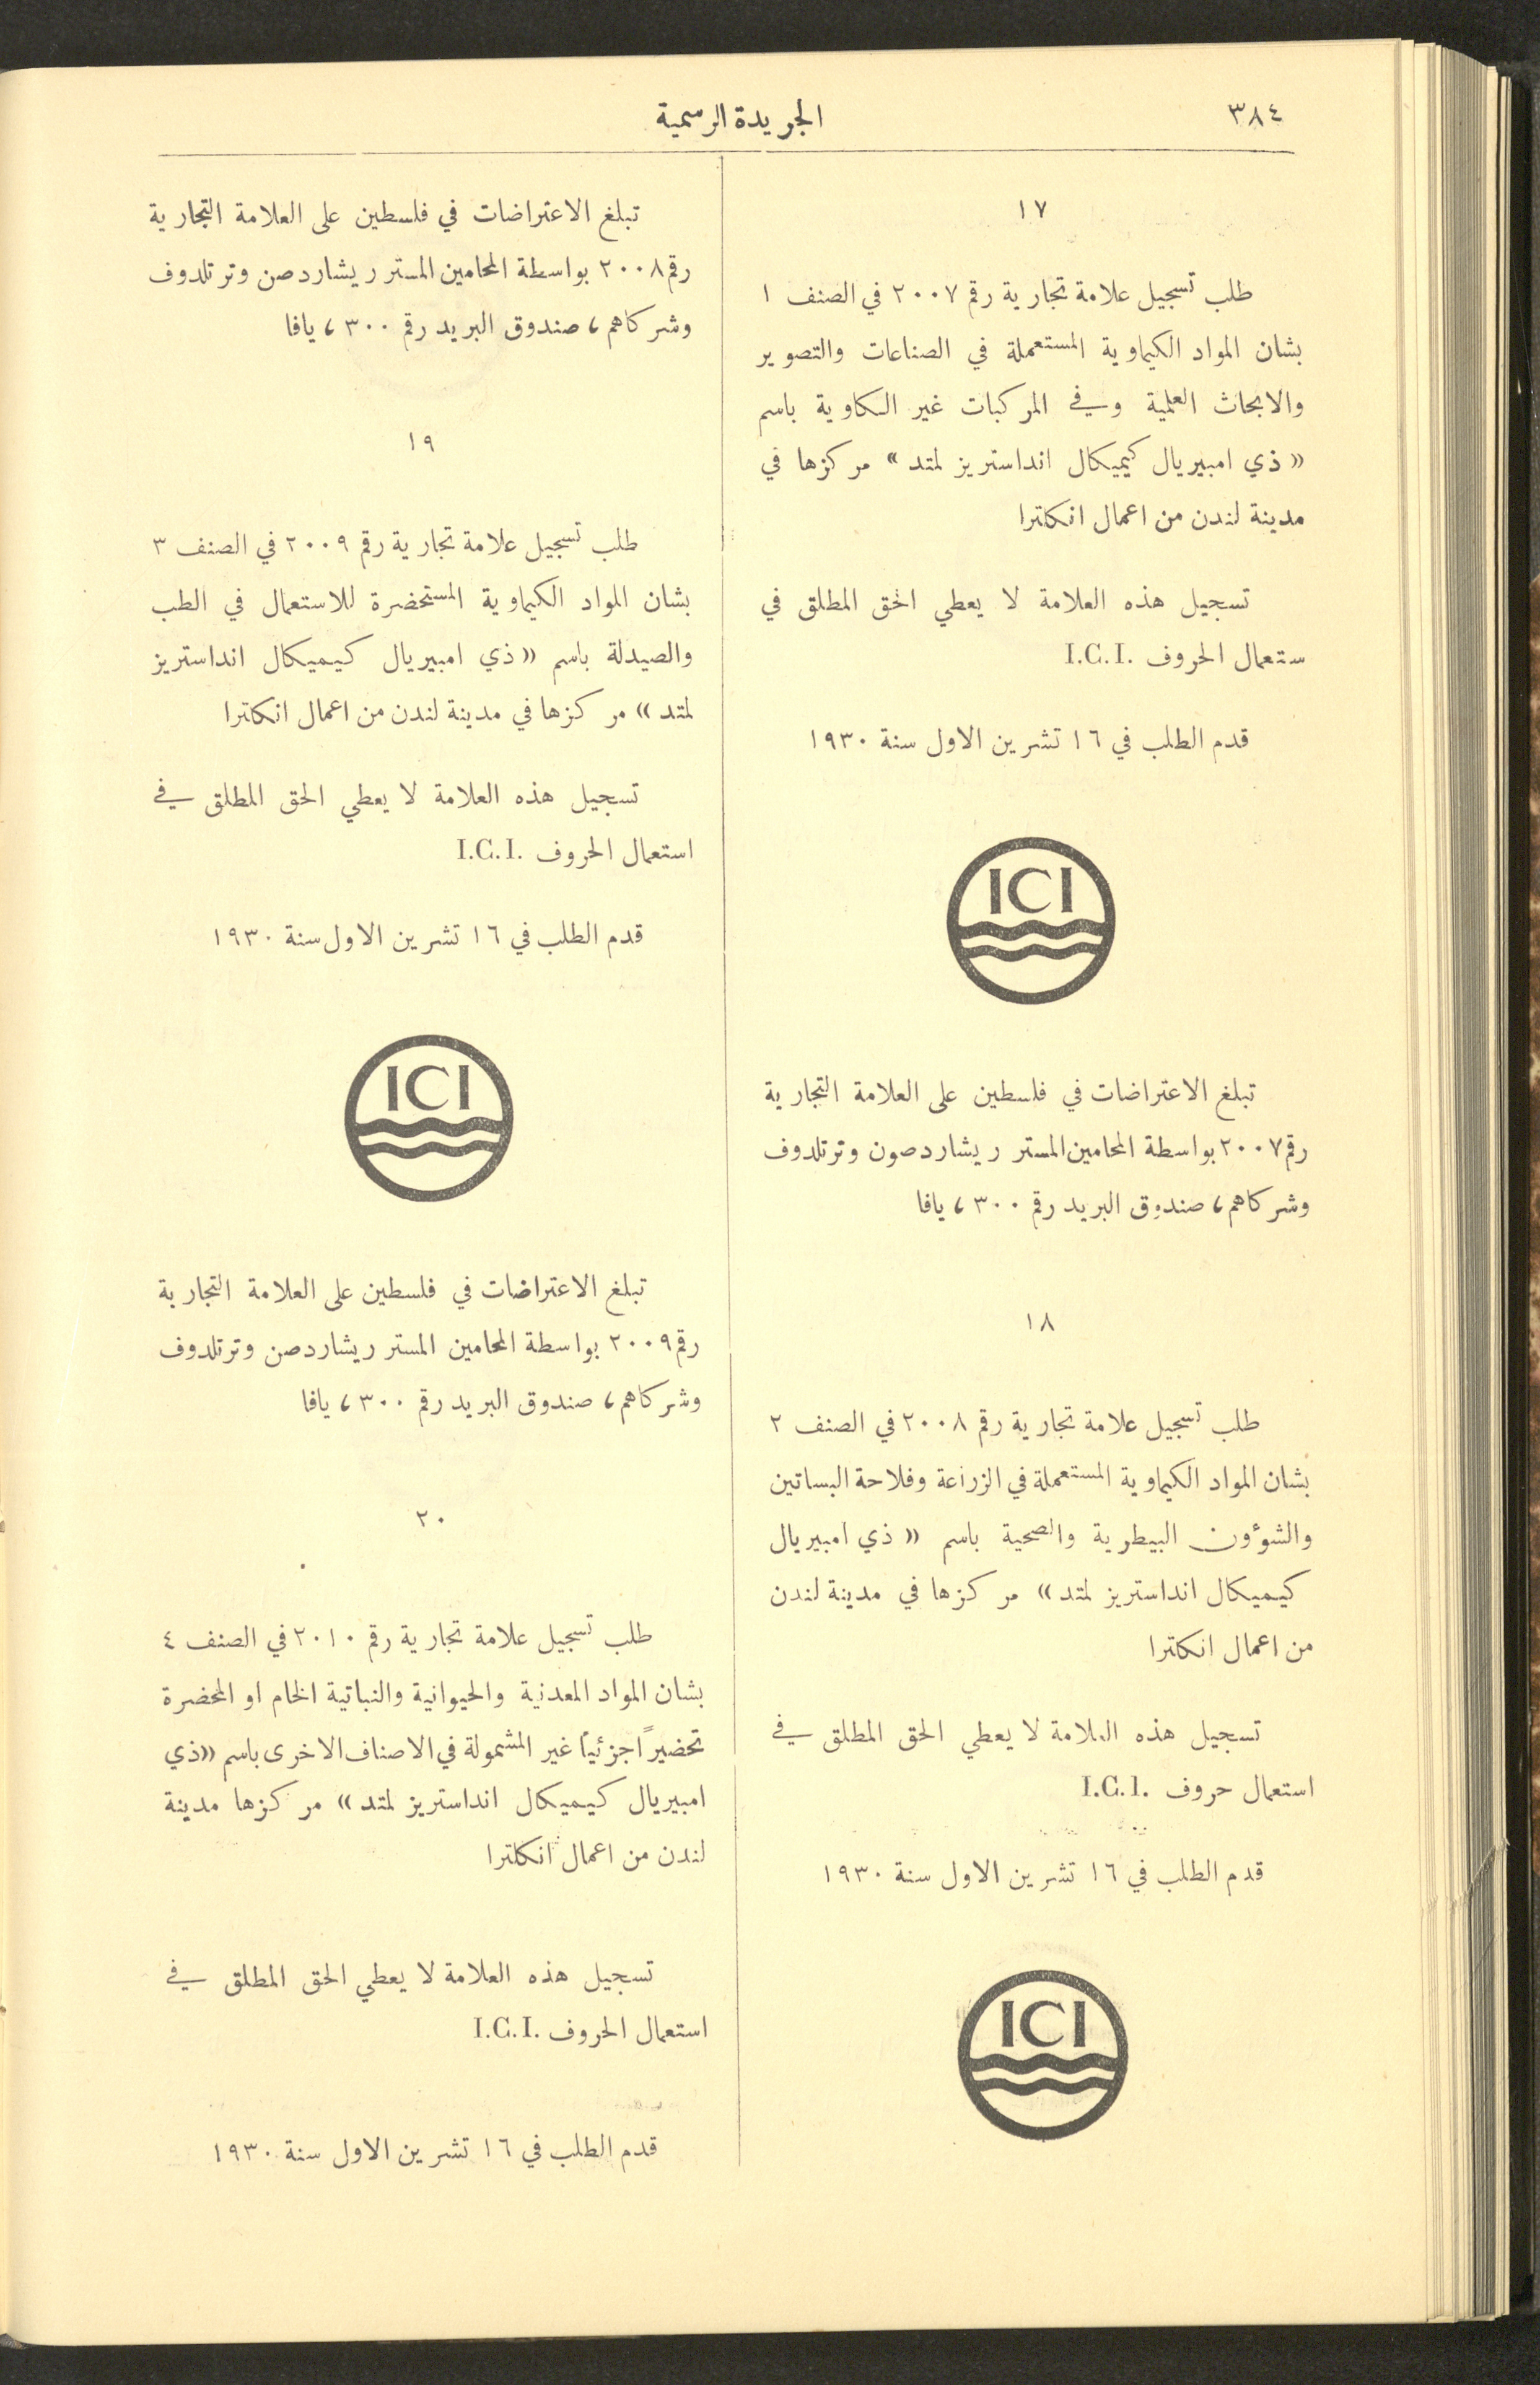 ٣٨٤
الجريدة الرسمية
١٧
طلب تسجيل علامة تجارية رقم ٢٠٠٧ في الصنف ١
بشان المواد الكيماوية المستعملة في الصناعات والتصوير
والابحاث العلمية وفي المركبات غير الكاوية باسم
« ذي امبيريال كيميكال انداستريز لمتد » مركزها في
مدينة لندن من اعمال انكلترا
تسجيل هذه العلامة لا يعطي الحق المطلق في
ستعمال الحروف I.C.I.
قدم الطلب في ١٦ تشرين الاول سنة ١٩٣٠
ICI
تبلغ الاعتراضات في فلسطين على العلامة التجارية
رقم ٢٠٠٧ بواسطة المحامين المستر ريشاردصون وترتلدوف
وشركاهم ، صندوق البريد رقم ٣٠٠ ، يافا
١٨
طلب تسجيل علامة تجارية رقم ٢٠٠٨ في الصنف ٢
بشان المواد الكيماوية المستعملة في الزراعة وفلاحة البساتين
والشوؤون البيطرية والصحية باسم « ذي امبيريال
كيميكال انداستريز لمتد » مركزها في مدينة لندن
من اعمال انكلترا
تسجيل هذه العلامة لا يعطي الحق المطلق في
استعمال حروف I.C.I.
قدم الطلب في ١٦ تشرين الاول سنة ١٩٣٠
ICI
تبلغ الاعتراضات في فلسطين على العلامة التجارية
رقم ٢٠٠٨ بواسطة المحامين المستر ريشاردصن وترتلدوف
وشركاهم ، صندوق البريد رقم ٣٠٠ ، يافا
١٩
طلب تسجيل علامة تجارية رقم ٢٠٠٩ في الصنف ٣
بشان المواد الكيماوية المستحضرة للاستعمال في الطب
والصيدلة باسم « ذي امبيريال كيميكال انداستريز
لمتد » مركزها في مدينة لندن من اعمال انكلترا
تسجيل هذه العلامة لا يعطي الحق المطلق في
استعمال الحروف I.C.I.
قدم الطلب في ١٦ تشرين الاول سنة ١٩٣٠
ICI
تبلغ الاعتراضات في فلسطين على العلامة التجارية
رقم ٢٠٠٩ بواسطة المحامين المستر ريشاردصن وترتلدوف
وشركاهم ، صندوق البريد رقم ٣٠٠ ، يافا
٢٠
طلب تسجيل علامة تجارية رقم ٢٠١٠ في الصنف ٤
بشان المواد المعدنية والحيوانية والنباتية الخام او المحضرة
تحضيراً جزئياً غير المشمولة في الاصناف الاخرى باسم « ذي
امبيريال كيميكال انداستريز لمتد » مركزها مدينة
لندن من اعمال انكلترا
تسجيل هذه العلامة لا يعطي الحق المطلق في
استعمال الحروف I.C.I.
قدم الطلب في ١٦ تشرين الاول سنة ١٩٣٠